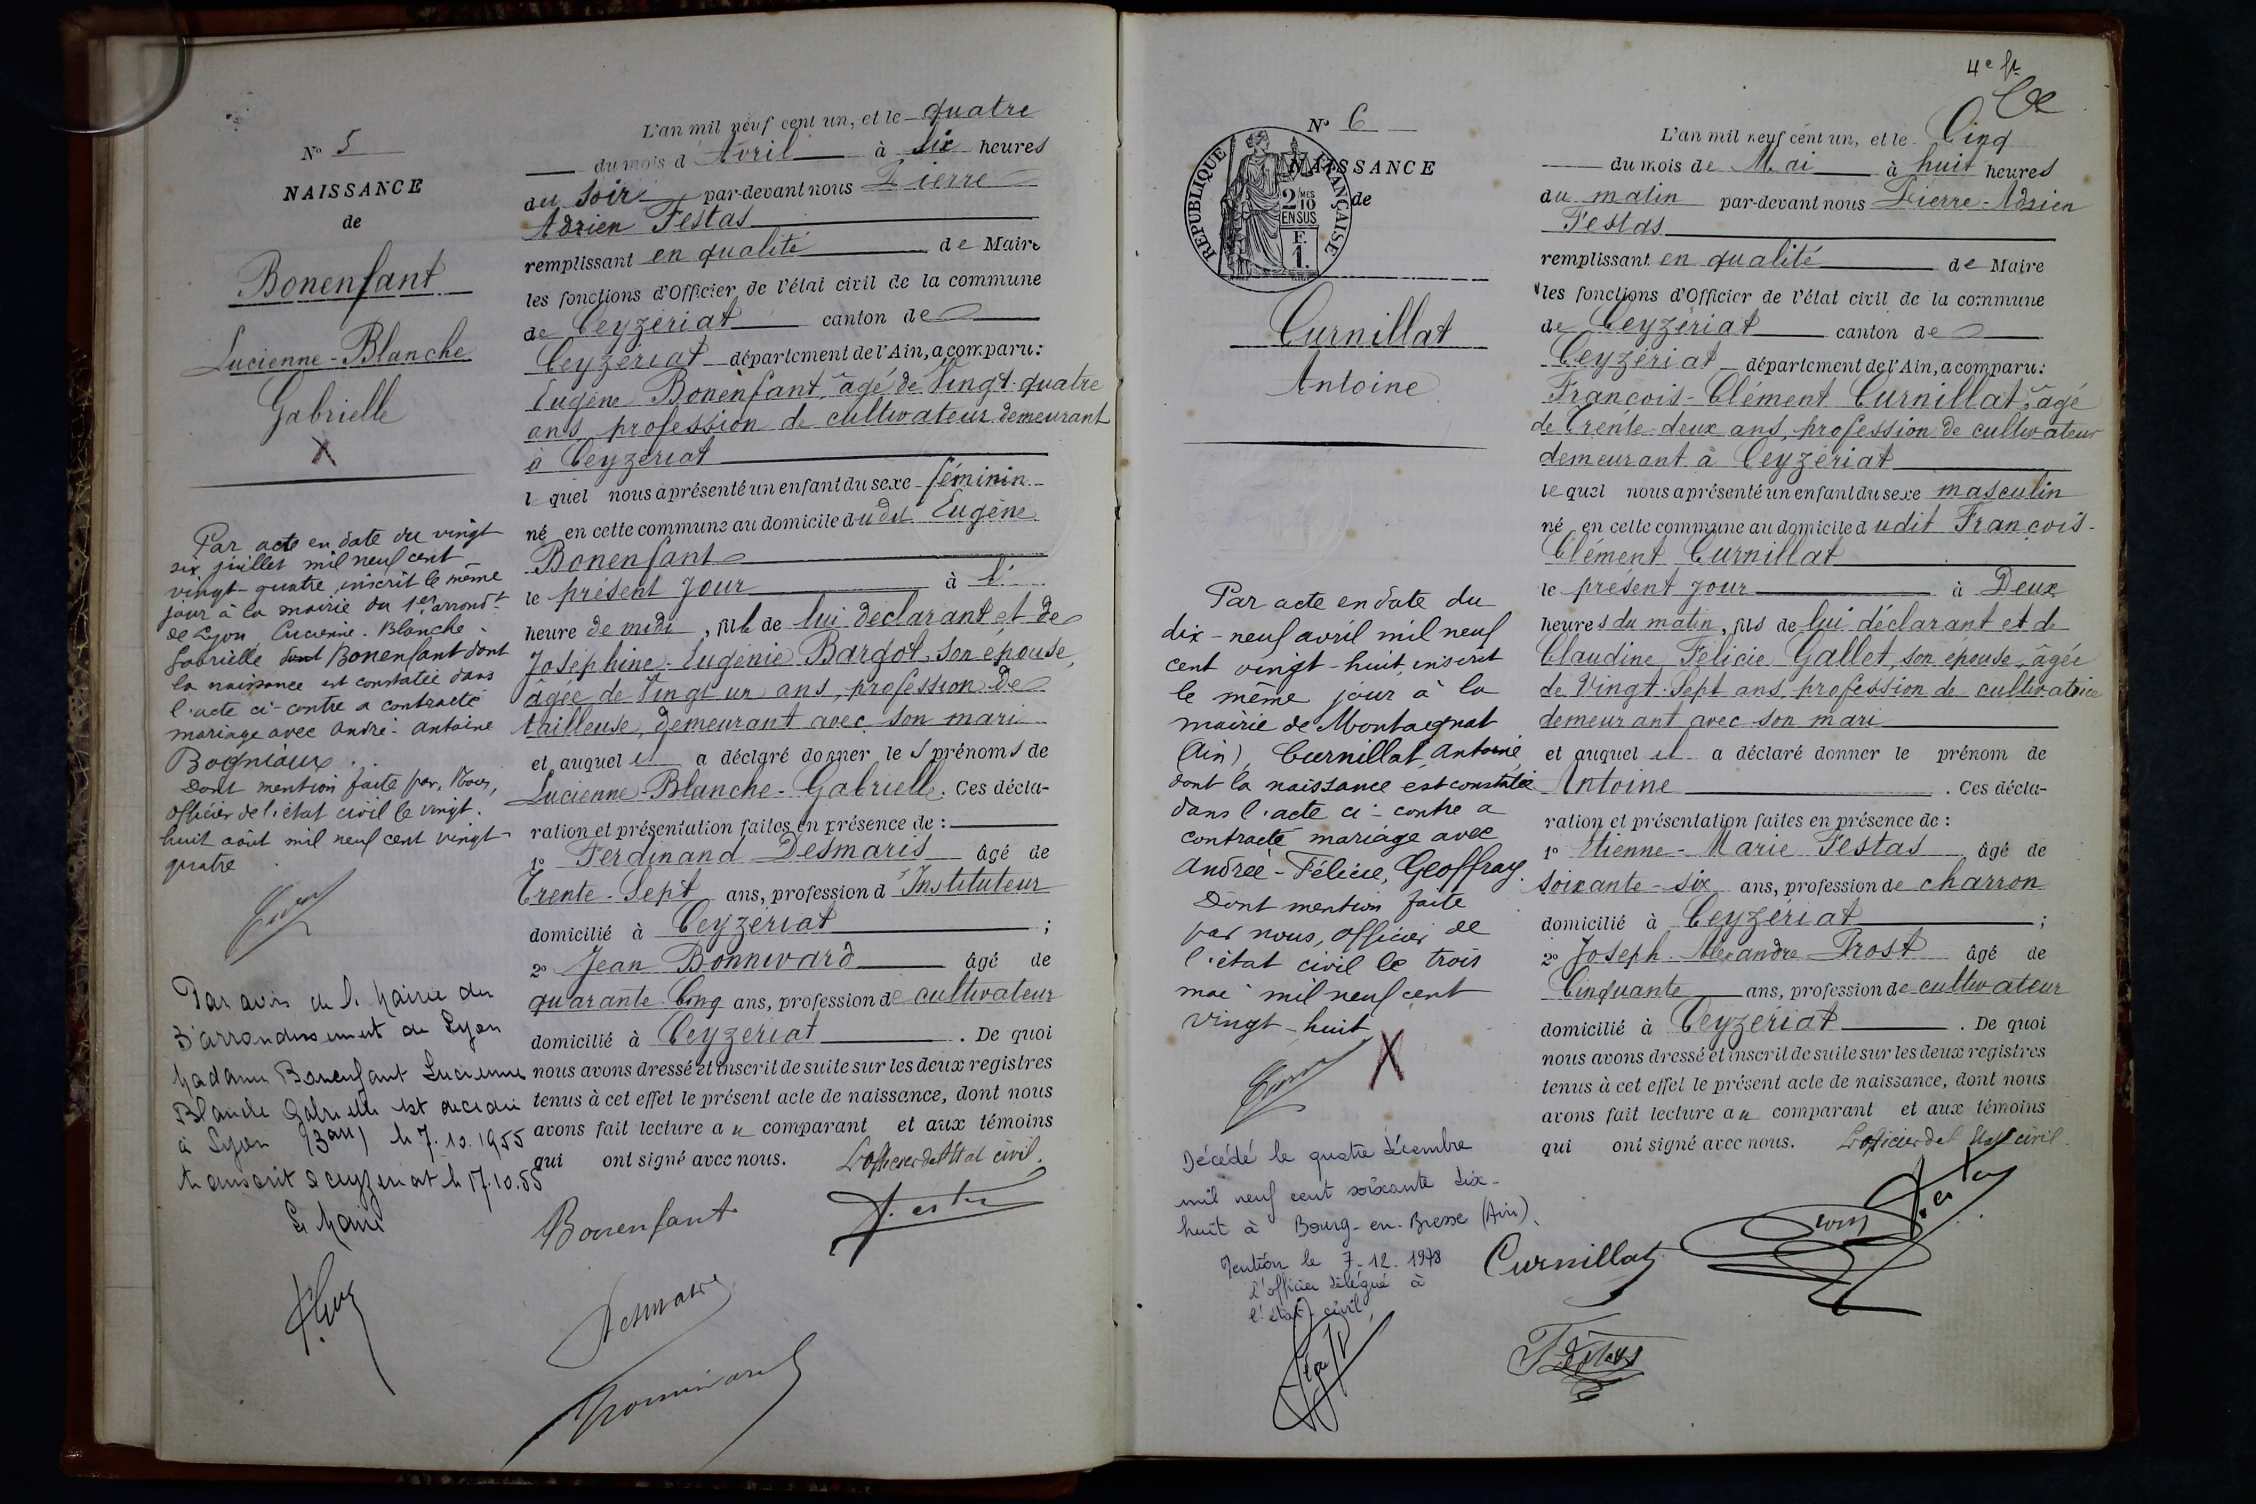 N° 5
NAISSANCE
de
Bonenfant
Lucienne-Blanche
Gabrielle
X
Par acte en date du vingt
six juillet mil neuf cent
vingt-quatre, inscrit le même
jour à la mairie du 1er arrondt
de Lyon, Lucienne-Blanche-
Gabrielle Bonenfant dont
la naissance est constatée dans
l'acte ci-contre a contracté
mariage avec André-Antoine
Bogniaux.
Dont mention faite par, Nous,
officier de l'état civil le vingt-
huit août mil neuf cent vingt-
quatre
Par avis de la Mairie du
3e arrondissement de Lyon
Madame Bonenfant Lucienne
Blanche Gabrielle est décédée
à Lyon (3 arr) le 7.10.1955
transcrit à Ceyzeriat le 17.10.55
Le Maire
L'an mil neuf cent un, et le quatre
du mois d'Avril à six heures
du soir par-devant nous Pierre
Adrien Festas
remplissant en qualité de Maire
les fonctions d'Officier de l'état civil de la commune
de Ceyzériat canton de
Ceyzériat département de l'Ain, a comparu:
Eugène Bonenfant, âgé de Vingt-quatre
ans, profession de cultivateur demeurant
à Ceyzériat
lequel nous a présenté un enfant du sexe féminin
né en cette commune au domicile dudit Eugène
Bonenfant
le présent jour à l'
heure de midi, fille de lui déclarant et de
Joséphine-Eugénie Bargot, son épouse,
âgée de Vingt un ans, profession de
tailleuse, demeurant avec son mari
et auquel il a déclaré donner les prénoms de
Lucienne-Blanche-Gabrielle. Ces décla-
ration et présentation faites en présence de :
1° Ferdinand Desmaris âgé de
Trente-Sept ans, profession d'Instituteur
domicilié à Ceyzériat ;
2° Jean Bonnivard âgé de
quarante-Cinq ans, profession de cultivateur
domicilié à Ceyzériat . De quoi
nous avons dressé et inscrit de suite sur les deux registres
tenus à cet effet le présent acte de naissance, dont nous
avons fait lecture au comparant et aux témoins
qui ont signé avec nous. L'officier de l'Etat civil.
Bonenfant
Festas
Desmaris
Bonnivard
4e ft
N° 6
NAISSANCE
de
RÉPUBLIQUE FRANÇAISE
2 MES 10
EN SUS
F.
1.
Curnillat
Antoine
Par acte en date du
dix-neuf avril mil neuf
cent vingt-huit, inscrit
le même jour à la
mairie de Montagnat
(Ain), Curnillat, Antoine
dont la naissance est constatée
dans l'acte ci-contre a
contracté mariage avec
Andrée-Félicie, Geoffray.
Dont mention faite
par nous, officier de
l'état civil le trois
mai mil neuf cent
vingt-huit
X
Décédé le quatre décembre
mil neuf cent soixante dix-
huit à Bourg-en-Bresse (Ain).
Mention le 7-12-1978
l'officier délégué à
l'état civil,
L'an mil neuf cent un, et le Cinq
du mois de Mai à huit heures
du matin par-devant nous Pierre-Adrien
Festas
remplissant en qualité de Maire
les fonctions d'Officier de l'état civil de la commune
de Ceyzériat canton de
Ceyzériat département de l'Ain, a comparu:
François-Clément Curnillat, âgé
de Trente-deux ans, profession de cultivateur
demeurant à Ceyzériat
lequel nous a présenté un enfant du sexe masculin
né en cette commune au domicile dudit François-
Clément Curnillat
le présent jour à Deux
heures du matin, fils de lui déclarant et de
Claudine Félicie Gallet, son épouse, âgée
de Vingt-Sept ans, profession de cultivatrice
demeurant avec son mari
et auquel il a déclaré donner le prénom de
Antoine . Ces décla-
ration et présentation faites en présence de :
1° Etienne-Marie Festas âgé de
soixante-six ans, profession de charron
domicilié à Ceyzériat ;
2° Joseph-Alexandre Prost âgé de
Cinquante ans, profession de cultivateur
domicilié à Ceyzériat . De quoi
nous avons dressé et inscrit de suite sur les deux registres
tenus à cet effet le présent acte de naissance, dont nous
avons fait lecture au comparant et aux témoins
qui ont signé avec nous. L'officier de l'Etat civil.
Festas
Curnillat
Festas